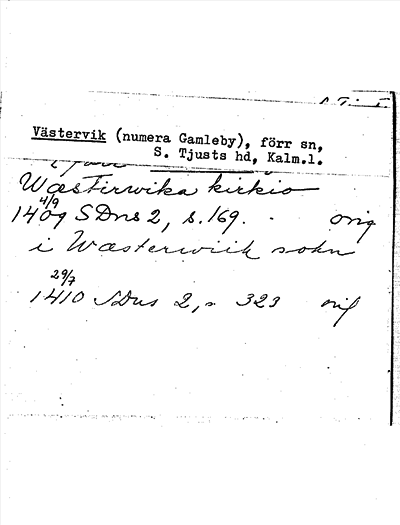 Västervik (numera Gamleby), förr sn,
S. Tjusts hd, Kalm.l.
Wæstirwika kirkio
4/9
1409 SDns 2, s. 169. orig
i Wæsterwiik sokn
29/7
1410 SDns 2, s 323 orig